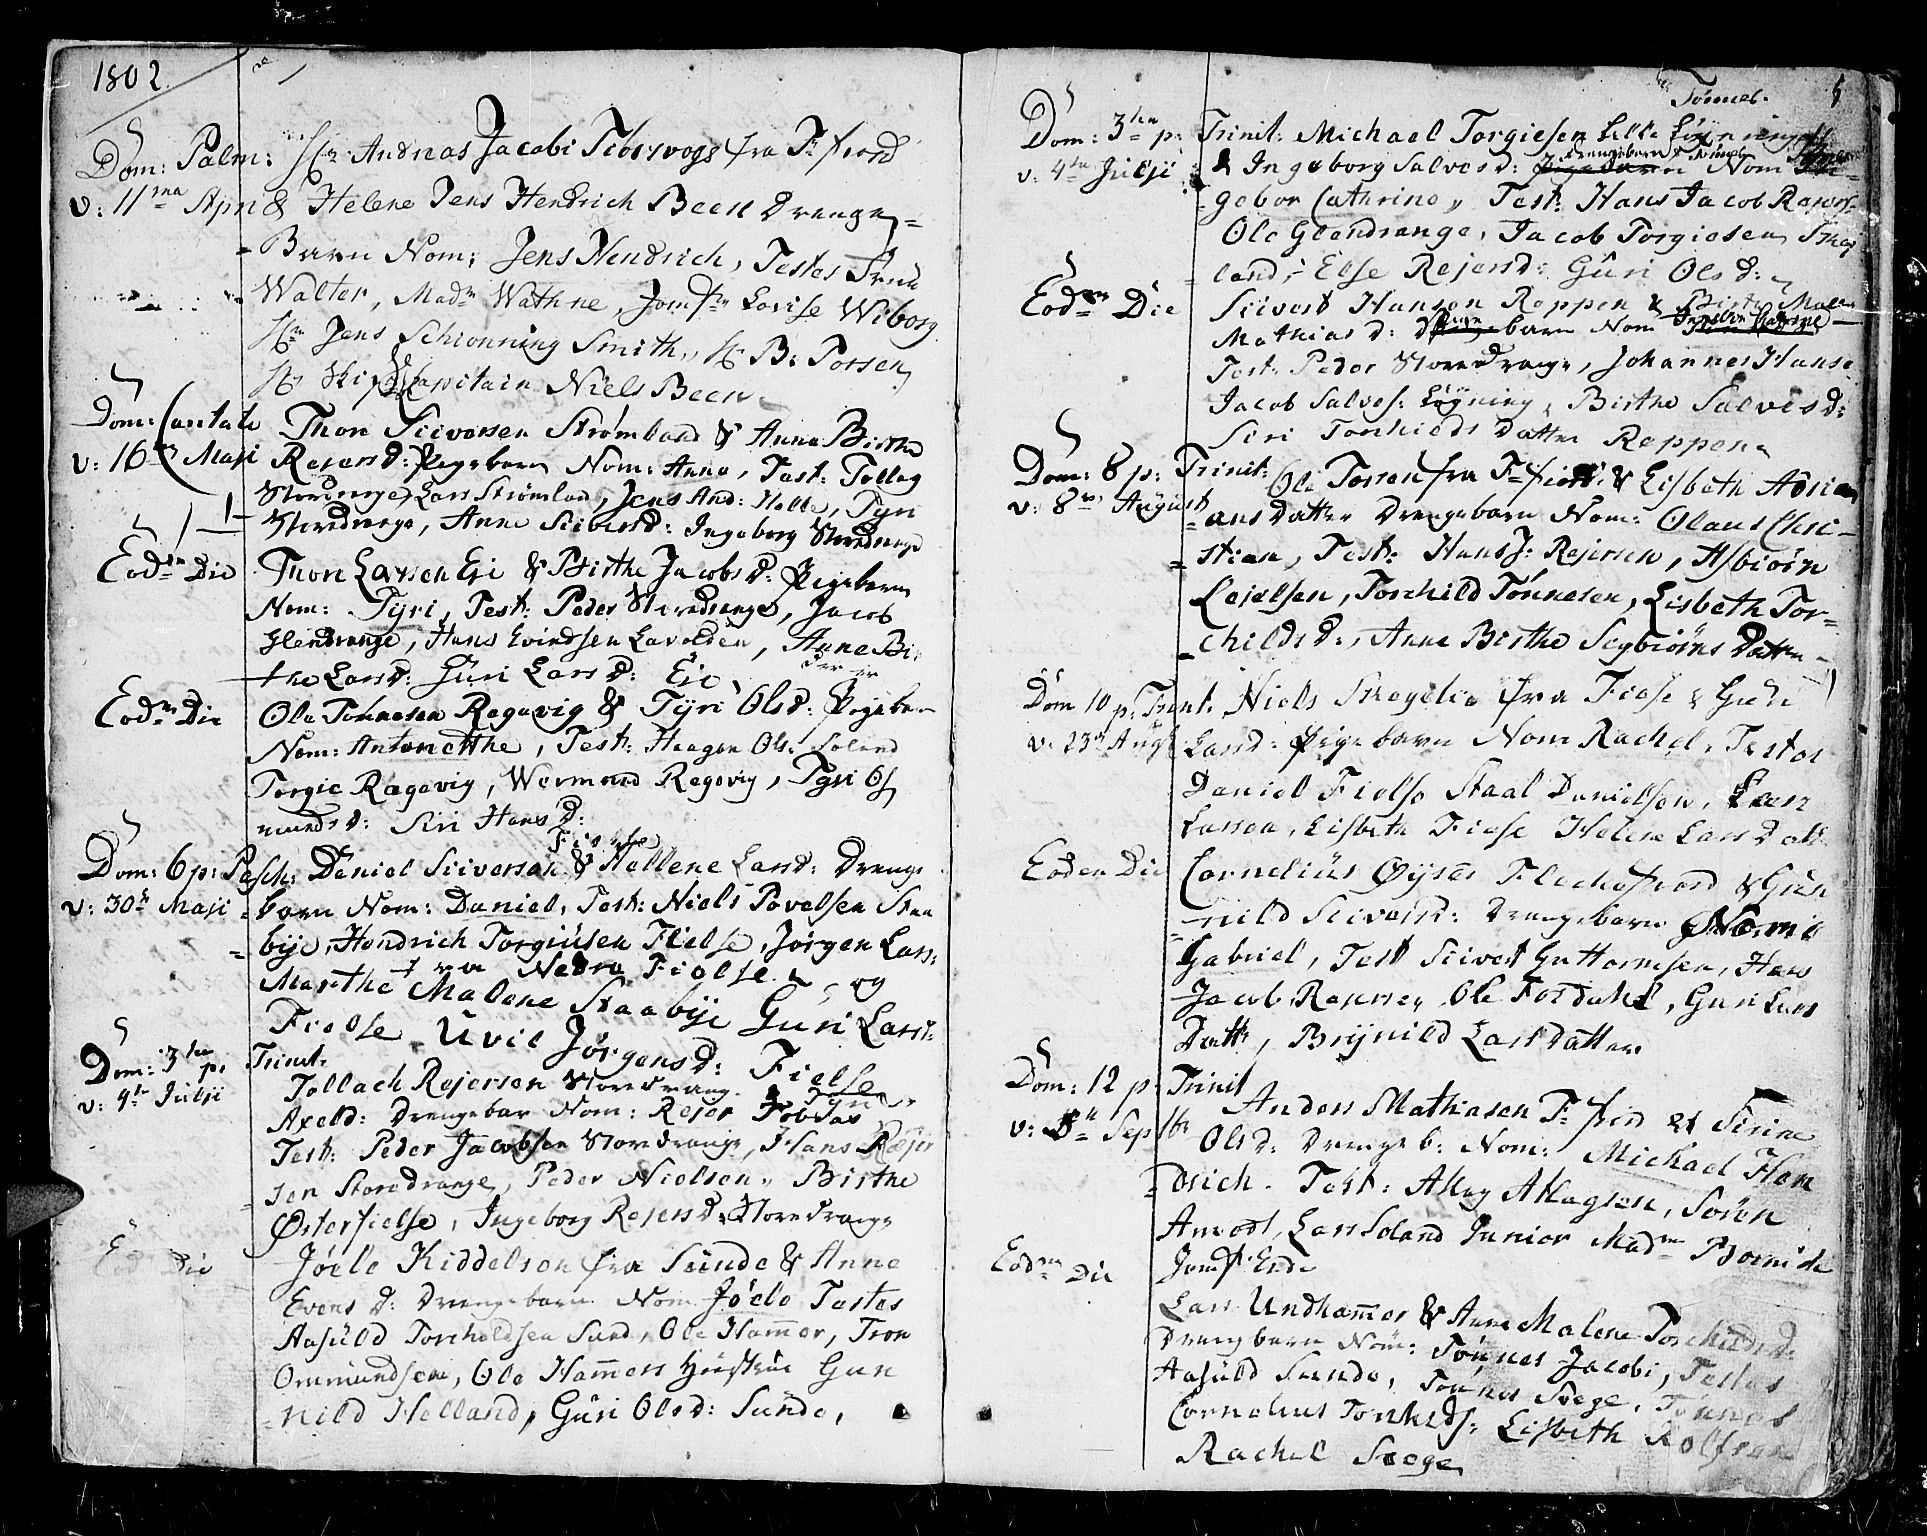 1802.
Dom: Palm: Hr Andreas Jacobi Tibervogs fra F: fiord
v: 11ma April & Helene Jens Hendrich Been Drenge=
= Barn Nom: Jens Hendrich, Testes
Walter, Madm Wathne, Jomfr Lovise Wiborg
Hr Jens Schionning Smith, Hr B: Possen,
Hr Skips Capitain Niels Been
Dom: Cantate Thore Siversen Strømland & Anna Birthe
v: 16 Maji Rejersd: Pigebarn Nom: Anna, Test: Tolleg
Stordrange, Lars Strømland, Jens And: Helle, Tyri
Stordrange, Anne Siversd: Ingeborg Stordrange
Eodm Die Thore Larsen Eje & Birthe Jacobsd: Pigebarn
Nom: Tyri, Test: Peder Stordrange, Jacob
Glendrange, Hans Evindsen Lavolden, Anne Bir
the Larsd: Guri Larsd: Eie
Eodm Die Ole Tønnesen Regevig & Tyri Olsd: Pigebarn
Nom: Antonetthe, Test: Haagen Ols: Soland
Torgie Regevig, Wermund Regevig, Tyri Os
mundsd: Siri Hansd:
Fielse
Dom: 6 p: Pasch: Daniel Siiversen & Hellene Larsd: Drenge
v: 30te Maji = barn Nom: Daniel, Test: Niels Povelsen Staa
= bye, Hendrich Torgiusen Fielse, Jørgen Lars:
fra Nedre Fielse og
Marthe Malene Staabye Guri Larsd:
Fielse Uvil Jørgensd: Fielse
Dom: 3tia p: Trinit:
v: 4te Julji Tollach Rejersen Storedrange & Tyri
Axeld: Drengebar Nom: Rejer Tobias
Test: Peder Jacobsen Storedrange, Hans Rejer
sen Storedrange, Peder Nielsen, Birthe
Østerfielse, Ingeborg Rejersd: Storedrange
Eodm Die Jøele Kiddelsen fra Sunde & Anne
Evensd: Drengebarn Nom: Jøele Testes
Aasuld Torchildsen Sund, Ole Hammer, Tron
Ommundsen, Ole Hammers Hustrue Gun
= nild Helland, Guri Olsd: Sunde,
5
Tønnes.
Dom: 3tia p: Trinit: Michael Torgiesen Lille Løgning
v: 4te Julji & Ingeborg Salvesd: Drengebarn Tønnes Nom
= gebor Cathrine, Test: Hans Jacob Rejers:
Ole Glendrange, Jacob Torgiesen
land, Else Rejersd: Guri Olsd:
Eodm Die Siivert Hansen Reppen & Birte Malene
Mathiasd: Drengebarn Nom
Test: Peder Storedrange, Johannes Hanse
Jacob Salves: Løgning, Birthe Salvesd:
Siri Torkieds Datter Reppen
Dom: 8 p: Trinit: Ole Torsen fra F: fiord & Lisbeth Adrian
v: 8de August = ansdatter Drengebarn Nom: Olaus Chri-
= stian, Test: Hans J: Rejersen, Asbiørn
Lejelsen, Torchild Tønnesen, Lisbeth Tor-
= childsd:, Anne Birthe Segbiørns Datter
Dom 10 p: Trint. Niels Skregelie fra Fiese & Guri
v: 23de Augt Larsd: Pigebarn Nom Rachel, Testes
Daniel Fielse Staal Danielsen, Lars
Larsen, Lisbeth Fiese Helene Lars Datt
Eodem Die Cornelius Øysæ Fleckefiord & Gun
= nild Siversd: Drengebarn Nomie
Gabriel, Test Sivert Guttormsen, Hans
Jacob Rejersen, Ole Fosdahl, Guri Lars
Dattr, Brynild Lars Datter
Dom: 12 p: Trinit
v: 5te Septbr Anders Mathiasen F: fiord & Sirine
Olsd: Drengeb: Nom: Michael Hen
= drich. Test: Aslag Aslagsen, Søren
Amodt, Lars Soland Junior Madm Boemide
Jomf: Erde
Eodm Die Lars Undhammer & Anne Malene Torchildsd:
Drengbarn Nom: Tønnes Jacobi, Testes
Aasuld Sunde, Tønnes Svege, Tønnes
Cornelius Torkilds: Lisbeth Rolfsen
Rachel Svege